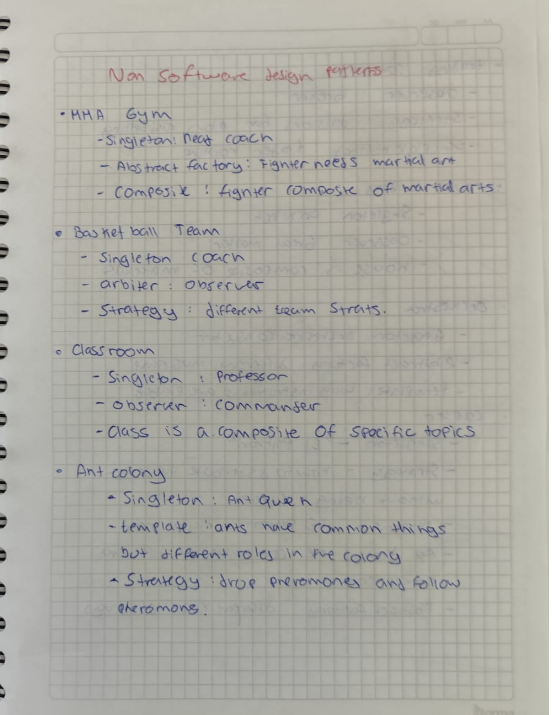 Non Software design patterns
• MMA Gym
- Singleton: head coach
- Abstract factory: Fighter needs martial art
- composite : fighter composte of martial arts
• Basketball Team
- Singleton coach
- arbiter : observer
- Strategy : different team Strats.
• Classroom
- Singleton : Professor
- observer : commander
- Class is a composite of specific topics
• Ant colony
- Singleton : Ant Queen
- template : ants have common things
but different roles in the colony
- Strategy : drop pheromones and follow
pheromons.